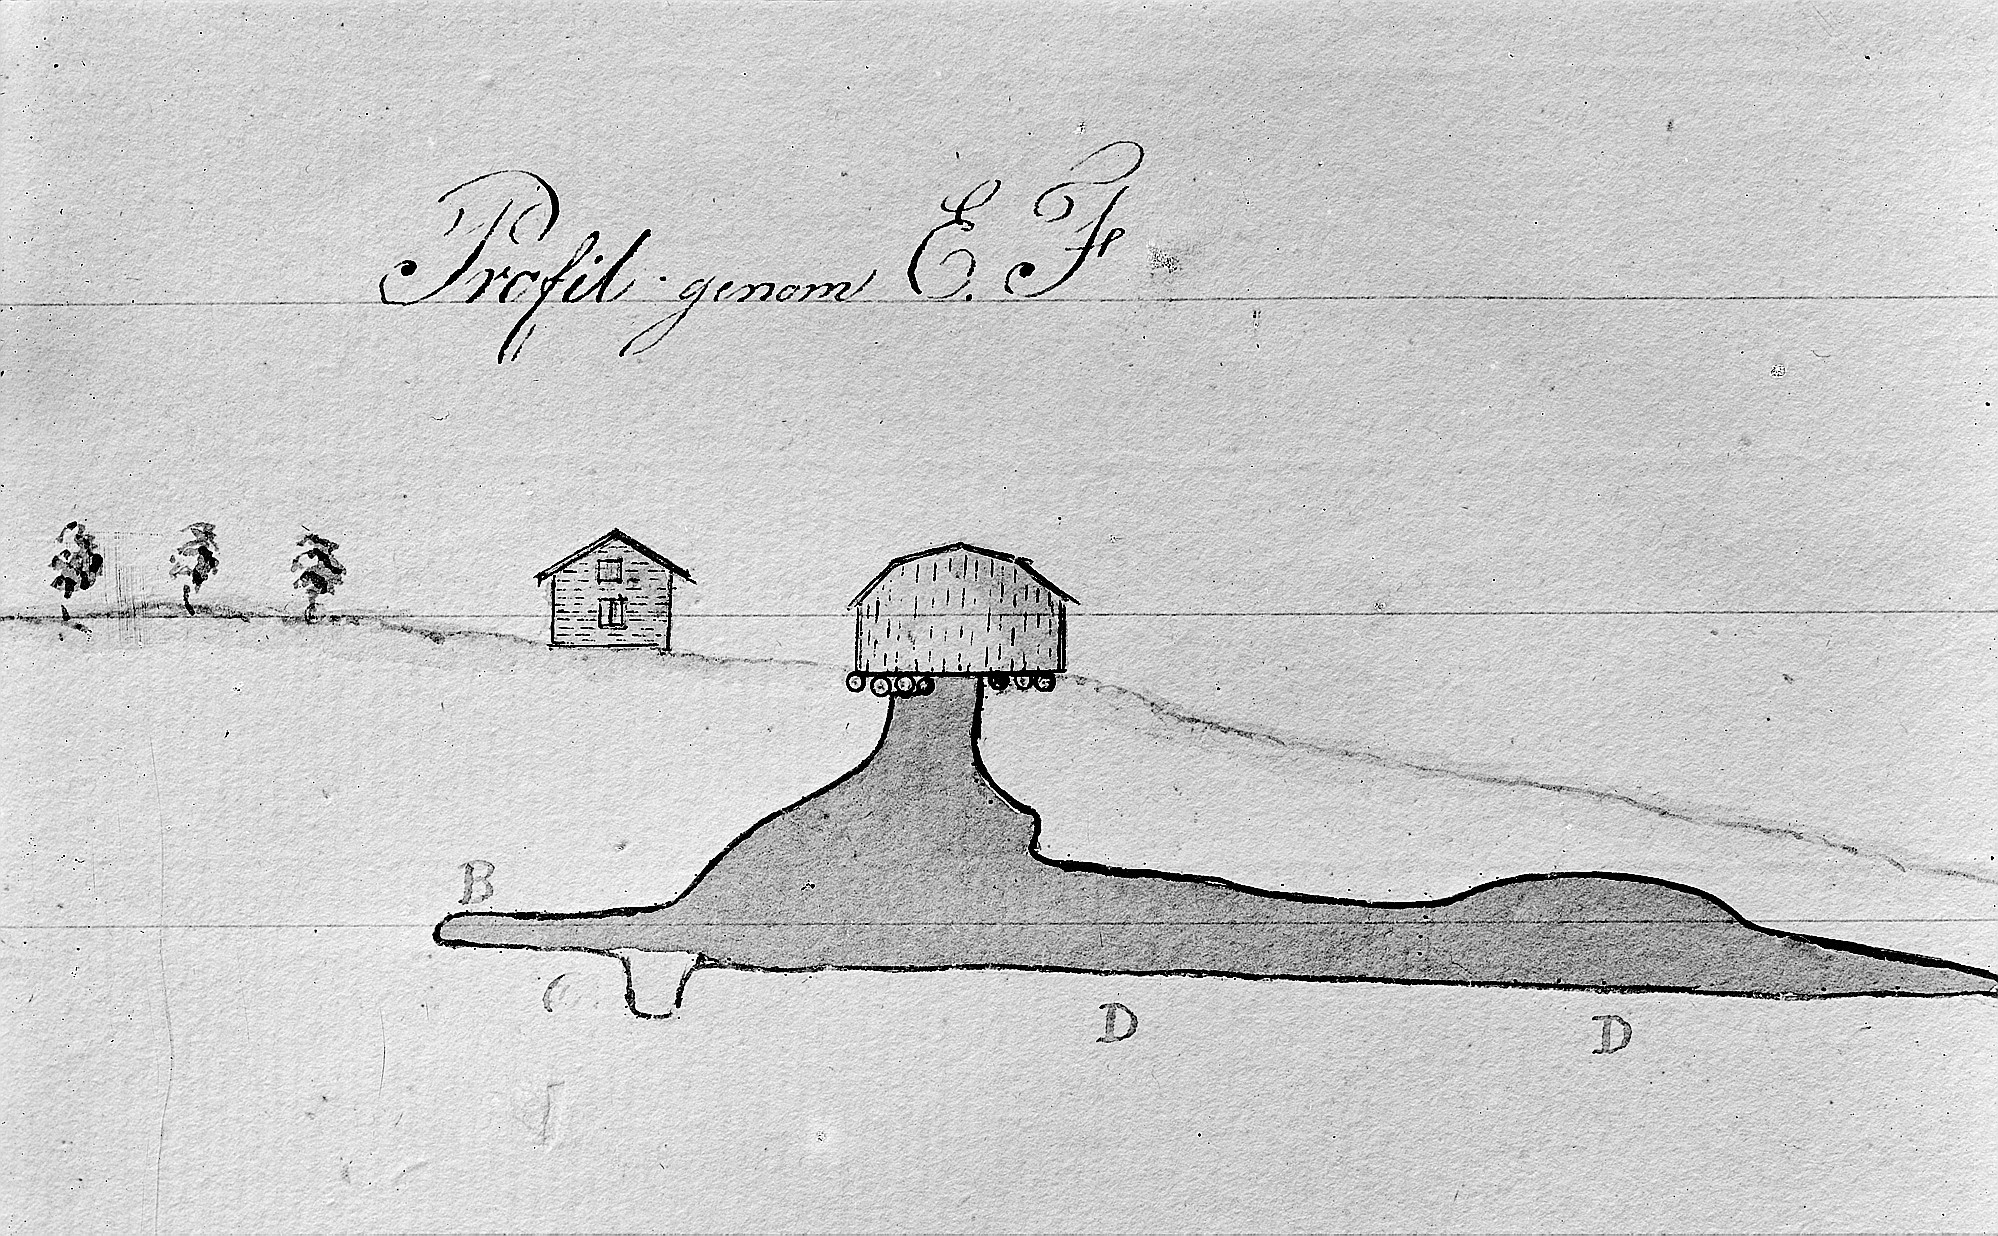 Profil genom E. F
B
C
D D